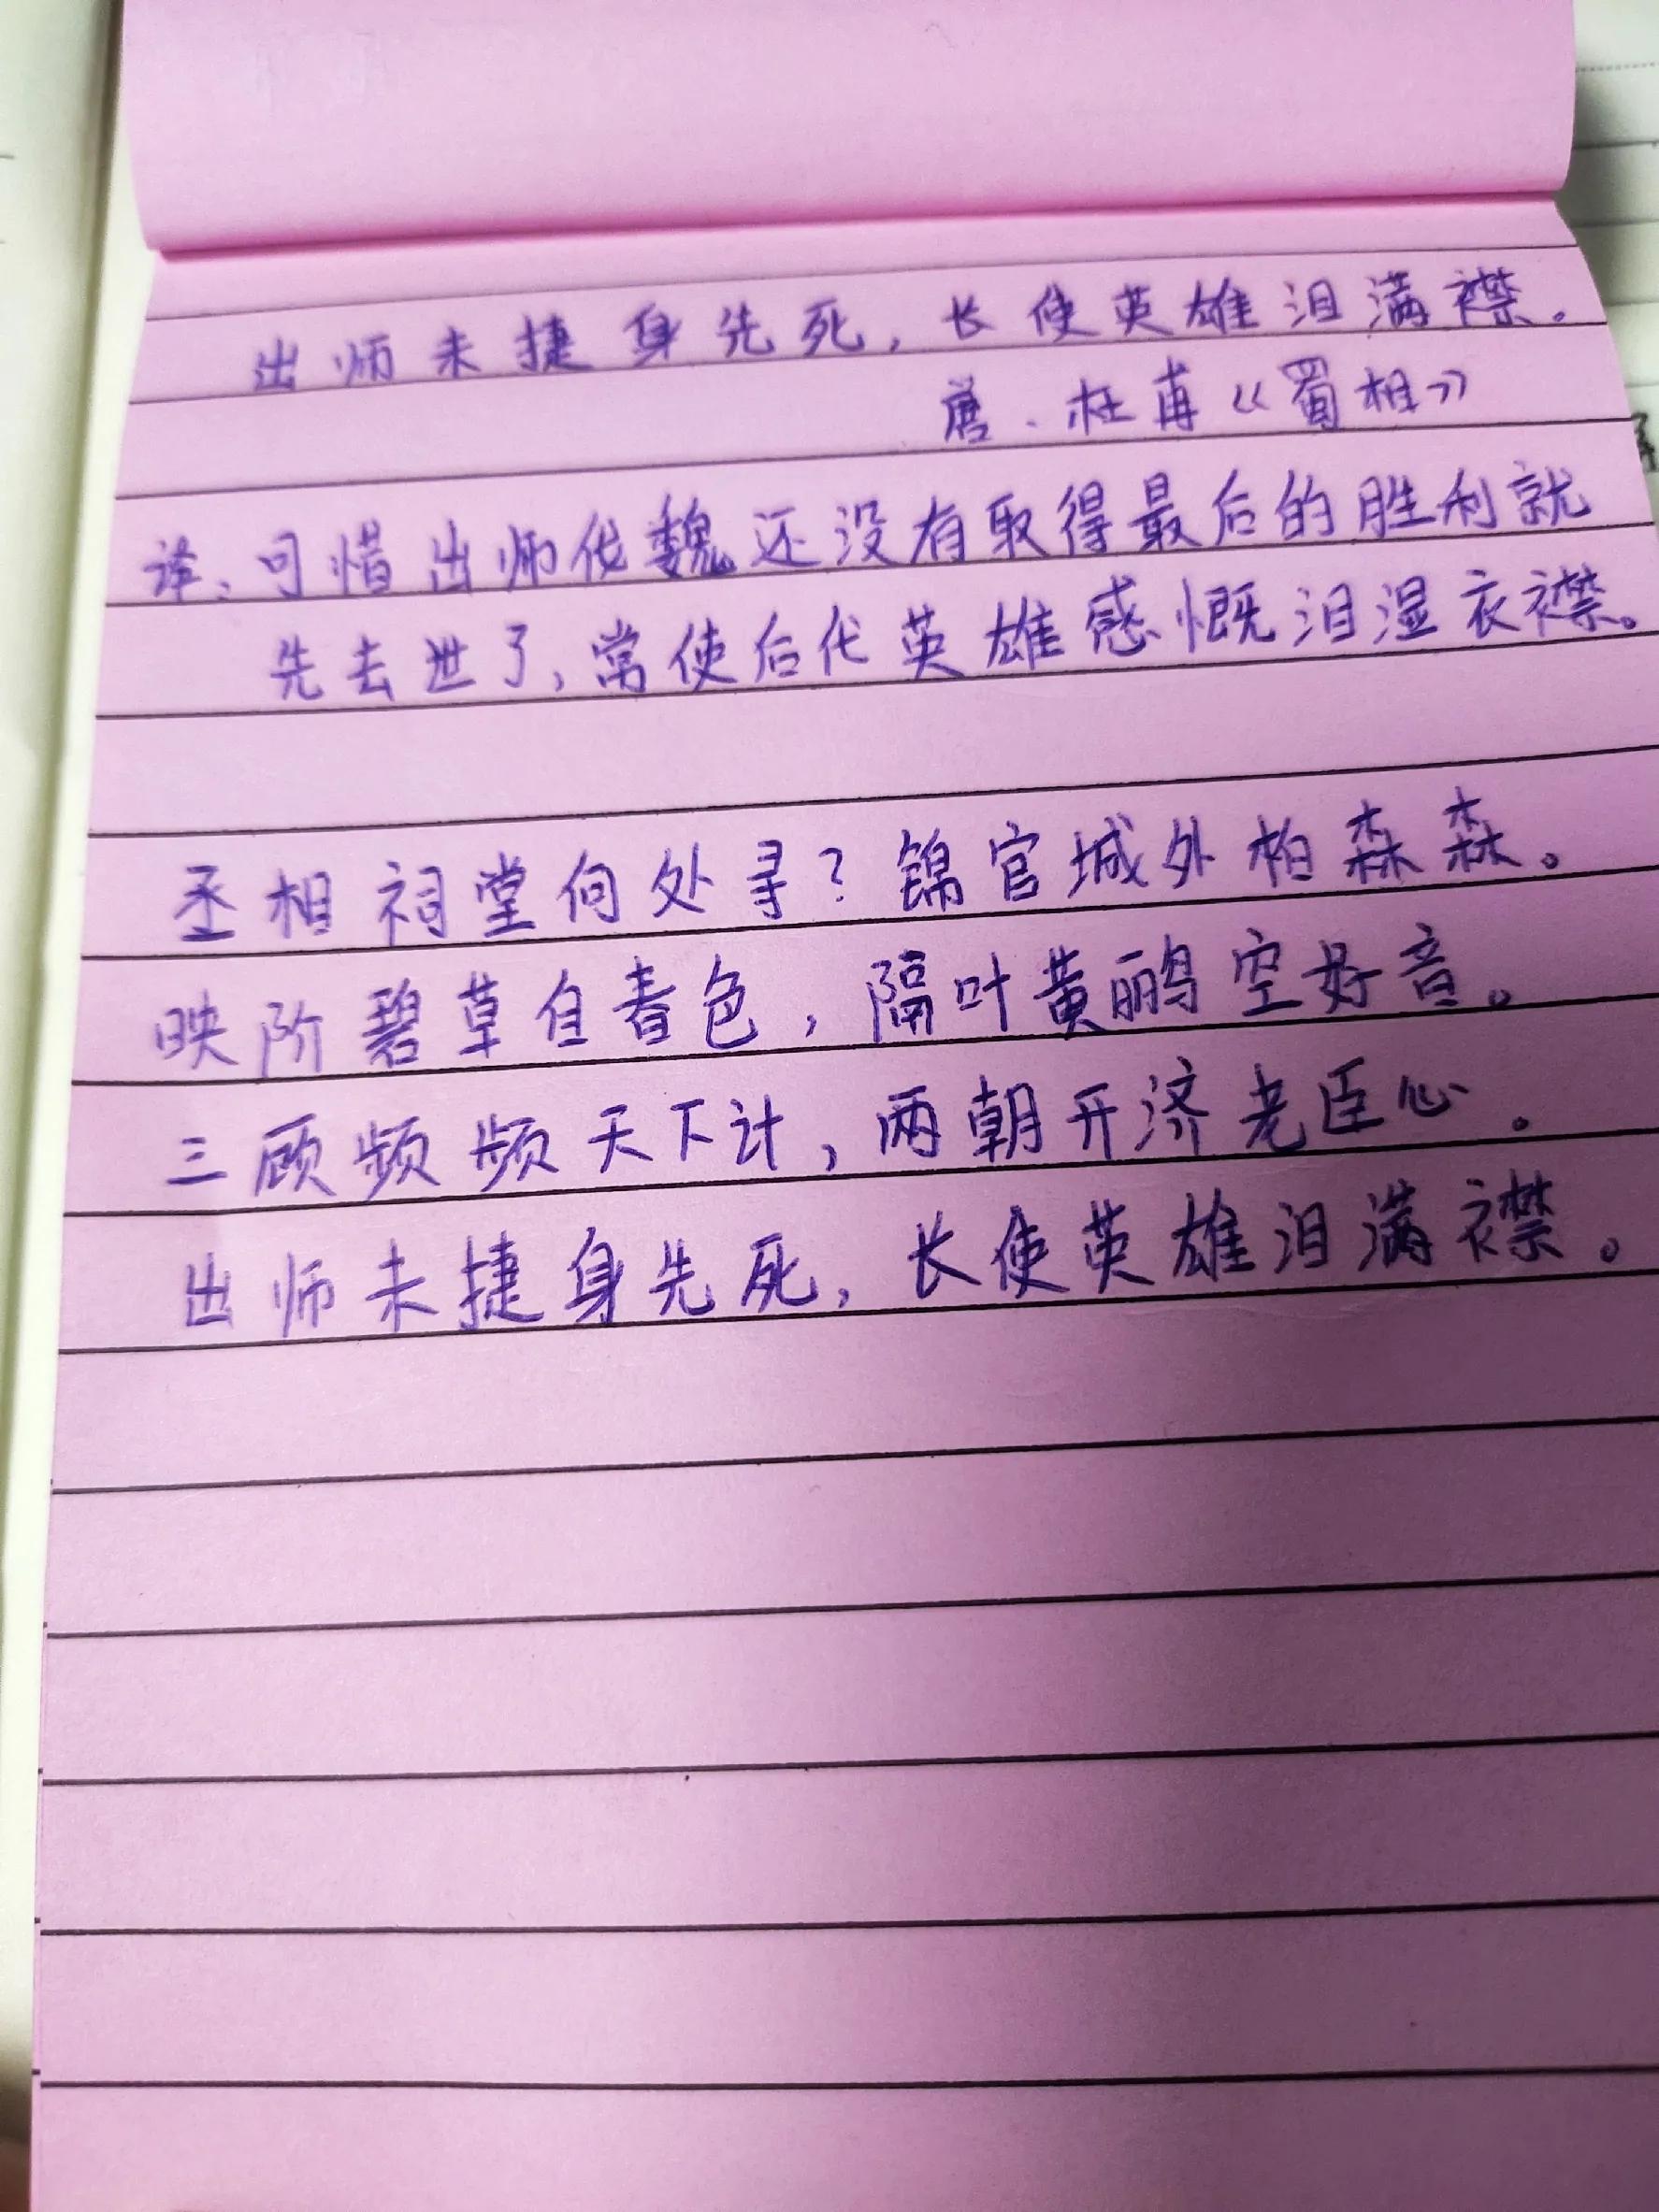 出师未捷身先死，长使英雄泪满襟。
唐·杜甫《蜀相》
译：可惜出师伐魏还没有取得最后的胜利就
先去世了，常使后代英雄感慨泪湿衣襟。
丞相祠堂何处寻？锦官城外柏森森。
映阶碧草自春色，隔叶黄鹂空好音。
三顾频频天下计，两朝开济老臣心。
出师未捷身先死，长使英雄泪满襟。